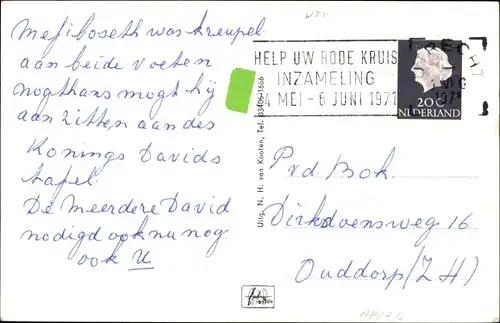 Mefiboseth was kreupel
aan beide voeten
nogthans mogt hij
aan zitten aan des
Konings Davids
tafel.
De meerdere David
nodigd ook nu nog
ook U
Uitg. N. H. van Kooten, Tel. 03406-1666
HELP UW RODE KRUIS
INZAMELING
24 MEI - 6 JUNI 1971
20 c
NEDERLAND
P v d Bok.
Dirkdoensweg 16
Ouddorp (Z H)